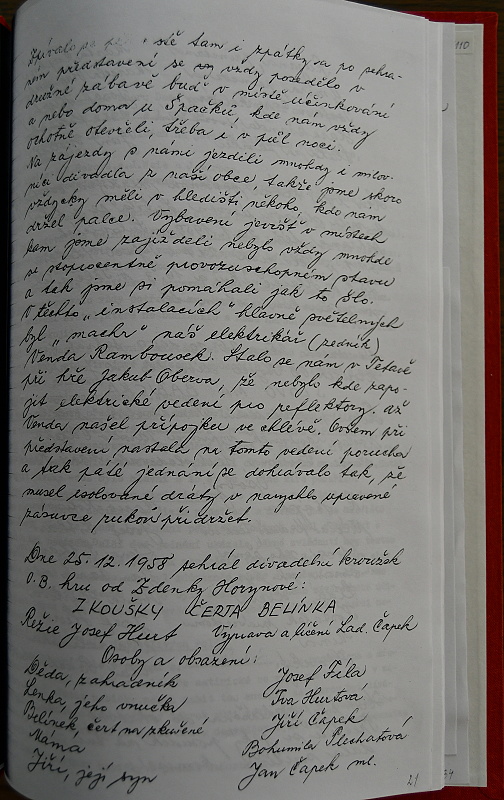 Zpívalo se cestě tam i zpátky a po sehra-
ném představení se vždy posedělo v
družné zábavě buď v místě účinkování
a nebo doma u Špačků, kde nám vždy
ochotně otevřeli, třeba i v půl noci.
Na zájezdy s námi jezdili mnohdy i milov-
níci divadla z naší obce, takže jsme skoro
vždycky měli v hledišti někoho, kdo nám
držel palce. Vybavení jevišť v místech
kam jsme zajížděli nebylo vždy mnohde
ve stoprocentně provozuschopném stavu
a tak jsme si pomáhali jak to šlo.
V těchto „instalacích" hlavně světelných
byl „machr" náš elektrikář (zedník)
Venda Rambousek. Stalo se nám v Tetově
při hře Jakub Oberva, že nebylo kde zapo-
jit elektrické vedení pro reflektory. až
Venda našel přípojku ve chlévě. Ovšem při
představení nastala na tomto vedení porucha
a tak páté jednání se dohrávalo tak, že
musel isolované dráty v narychlo upravené
zásuvce rukou přidržet.
Dne 25.12.1958 sehrál divadelní kroužek
O.B. hru od Zdenky Horynové:
ZKOUŠKY ČERTA BELÍNKA
Režie Josef Hurt Výprava a líčení Lad. Čapek
Osoby a obsazení:
Děda, zahradník Josef Fíla
Lenka, jeho vnučka Iva Hurtová
Belínek, čert na zkušené Jiří Čapek
Máma Bohumila Plechatová
Jiří, její syn Jan Čapek ml.
21
110